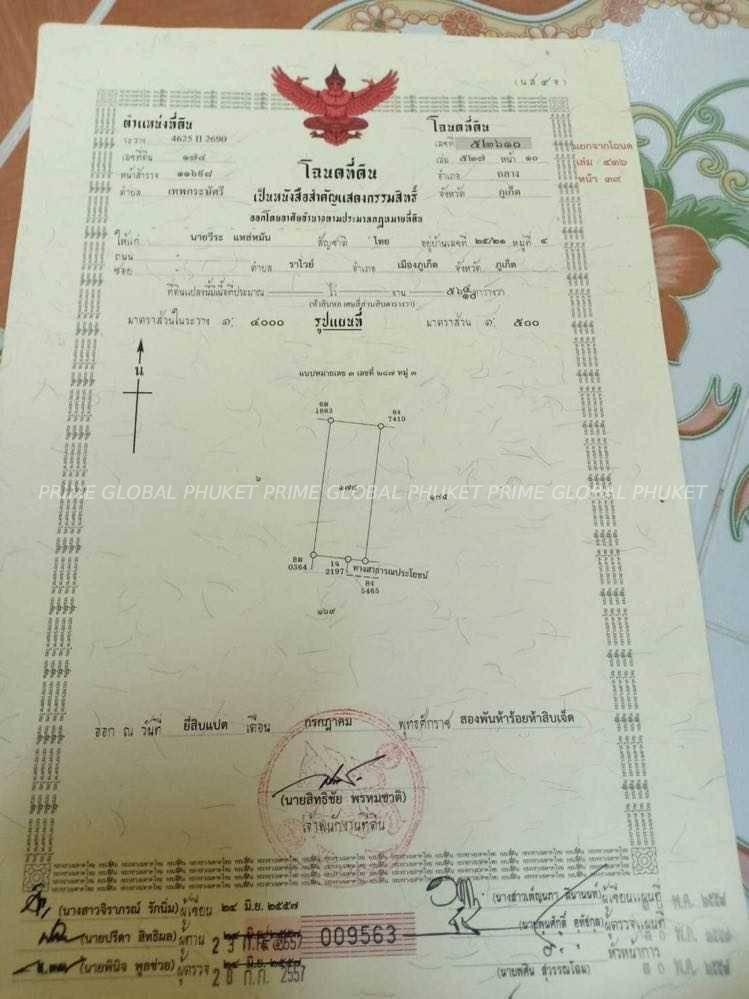 (น.ส. ๔ จ)
ตำแหน่งที่ดิน
ระวาง 4625 II 2690
เลขที่ดิน ๑๗๙
หน้าสำรวจ ๑๑๖๙๘
ตำบล เทพกระษัตรี
โฉนดที่ดิน
เลขที่ ๕๒๖๑๐
เล่ม ๕๒๗ หน้า ๑๐
อำเภอ ถลาง
จังหวัด ภูเก็ต
แยกจากโฉนด
เล่ม ๔๓๖
หน้า ๓๙
โฉนดที่ดิน
เป็นหนังสือสำคัญแสดงกรรมสิทธิ์
ออกโดยอาศัยอำนาจตามประมวลกฎหมายที่ดิน
ให้แก่ นายวีระ แหล่หมัน สัญชาติ ไทย อยู่บ้านเลขที่ ๒๕/๒๑ หมู่ที่ ๔
ถนน
ซอย ตำบล ราไวย์ อำเภอ เมืองภูเก็ต จังหวัด ภูเก็ต
ที่ดินแปลงนี้มีเนื้อที่ประมาณ ไร่ งาน ตารางวา
มาตราส่วนในระวาง ๑: ๔๐๐๐ รูปแผนที่ มาตราส่วน ๑: ๕๐๐
น
แบบหมายเลข ๓ เลขที่ ๒๘๗ หมู่ ๓
1883
7410
๖
๑๗๙
๑๗๕
PRIME GLOBAL PHUKET PRIME GLOBAL PHUKET PRIME GLOBAL PHUKET
0364
2197
ทางสาธารณประโยชน์
5465
๑๖๙
ออก ณ วันที่ ยี่สิบแปด เดือน กรกฎาคม พุทธศักราช สองพันห้าร้อยห้าสิบเจ็ด
(นายสิทธิชัย พรหมชาติ)
เจ้าพนักงานที่ดิน
(นางสาวจิราภรณ์ รักนิ่ม) ผู้เขียน ๒๔ มิ.ย. ๒๕๕๗
ผู้เขียนแผนที่ พ.ค. ๒๕๕๗
(นายปรีดา สิทธิผล) ผู้ทาน
009563
ผู้ตรวจแผนที่
(นายพินิจ พูลช่วย) ผู้ตรวจ 2 8 ก.ค. 2557
หัวหน้าการ